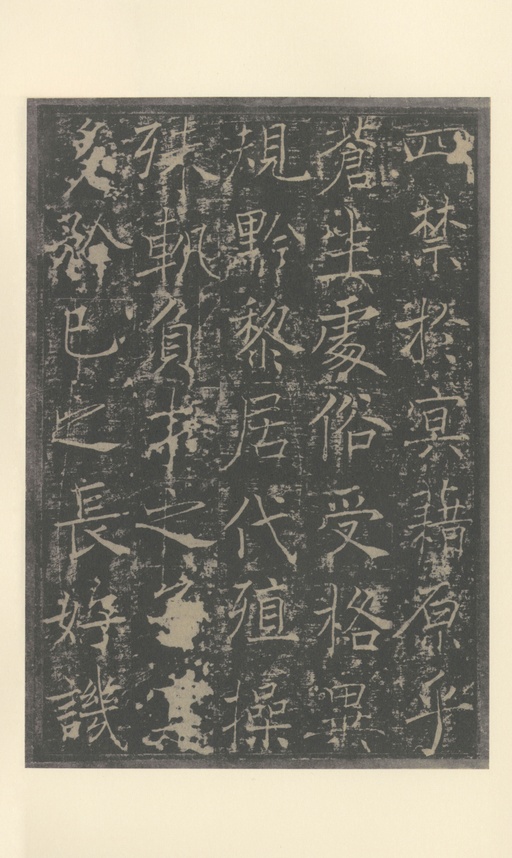 四禁於冥藉原乎
蒼生處俗受格異
規黔黎居代殖操
殊軌負才之
矜己之長好譏